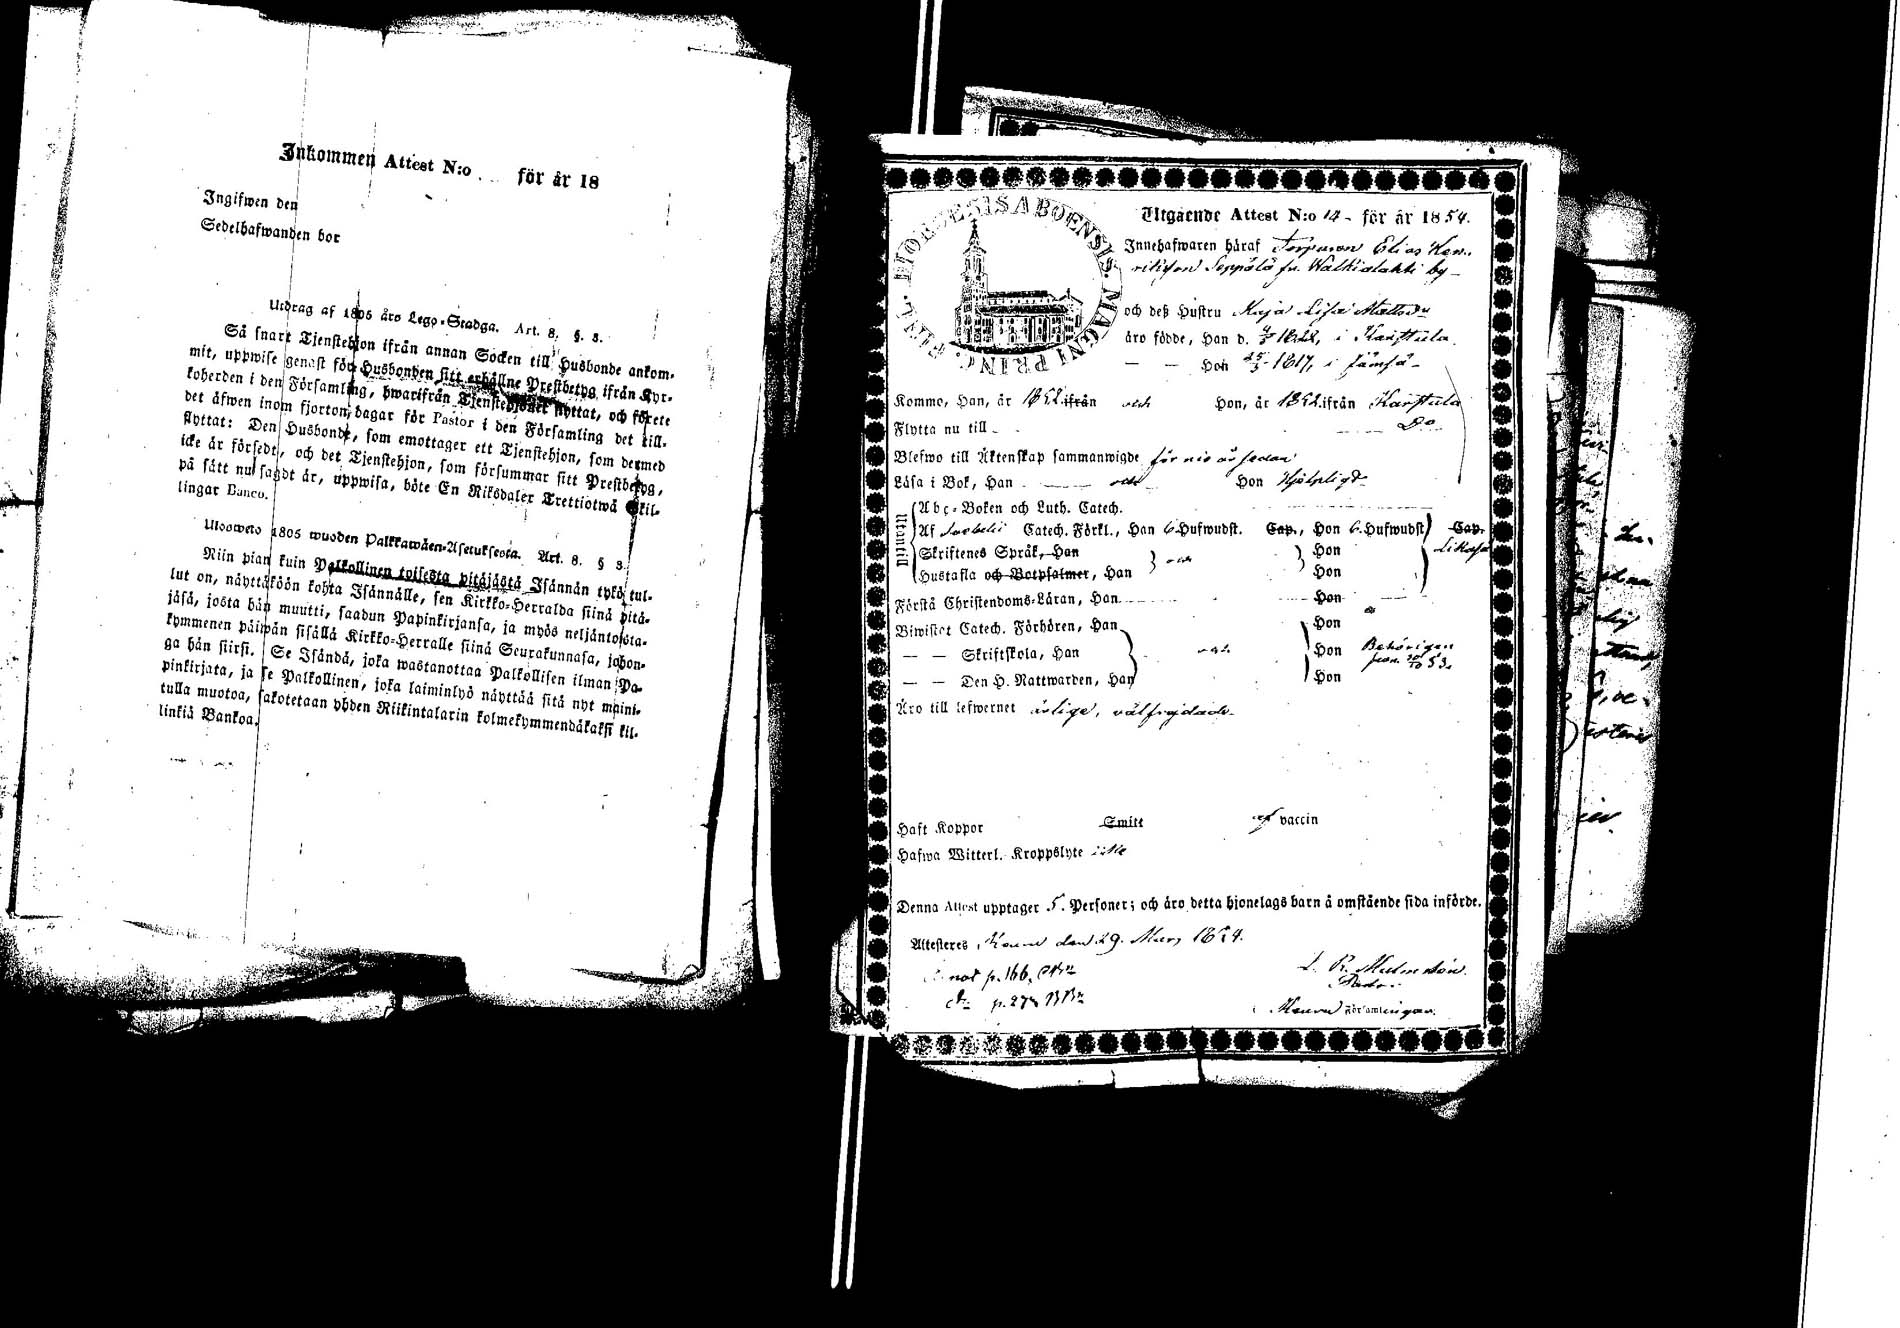 Inkommen Attest N:o för år 18
Ingifwen den
Sedelhafwanden bor
Utdrag af 1805 års Lego-Stadga. Art. 8. §. 3.
Så snart Tjenstehjon ifrån annan Socken till Husbonde ankom-
mit, uppwise genast för Husbonden sitt erhållne Prestbetyg ifrån Kyr-
koherden i den Församling, hwarifrån Tjenstehjonet flyttat, och förete
det äfwen inom fjorton dagar för Pastor i den Församling det till-
flyttat: Den Husbonde, som emottager ett Tjenstehjon, som dermed
icke är försedt, och det Tjenstehjon, som försummar sitt Prestbetyg,
på sätt nu sagdt är, uppwisa, böte En Riksdaler Trettiotwå Skil-
lingar Banco.
Ulosweto 1805 wuoden Palkkawäen-Asetuksesta. Art. 8. § 3.
Niin pian kuin Palkollinen toisesta pitäjästä Isännän tykö tul-
lut on, näyttäköön kohta Isännälle, sen Kirkko-Herralda siinä pitä-
jäsä, josta hän muutti, saadun Papinkirjansa, ja myös neljäntoista-
kymmenen päiwän sisällä Kirkko-Herralle siinä Seurakunnasa, johon-
ga hän siirsi. Se Isändä, joka wastanottaa Palkollisen ilman Pa-
pinkirjata, ja se Palkollinen, joka laiminlyö näyttää sitä nyt maini-
tulla muotoa, sakotetaan yhden Riikintalarin kolmekymmendäkaksi kil-
linkiä Bankoa.
DIOECESIS ABOENSIS. MAGNI PRINC. FINL.
Utgående Attest N:o 14 - för år 1854.
Innehafwaren häraf Torparen Elias Hen-
riksson Seppälä fr. Walkialahti by -
och deß Hustru Maja Lisa Mattsdr
äro födde, Han d. 1822, i Karstula.
— — Hon 25/5 1817, i Jämsä -
Kommo, Han, år 1852 ifrån och Hon, år 1852 ifrån Karstula
Flytta nu till - Do
Blefwo till Äktenskap sammanwigde för nio år sedan
Läsa i Bok, Han och Hon Hjelpligt
Utantill
Abc-Boken och Luth. Catech.
Af Swebelii Catech. Förkl., Han 6 Hufwudst. Cap., Hon 6 Hufwudst Cap.
Skriftenes Språk, Han och Hon Likaså
Hustafla och Botpsalmer, Han Hon
Förstå Christendoms-Läran, Han Hon
Biwistat Catech. Förhören, Han Hon
— — Skriftskola, Han och Hon Behörigen
— — Den H. Nattwarden, Han Hon
Äro till lefwernet ärlige, välfrejdade -
Haft Koppor Smitt af vaccin
Hafwa Witterl. Kroppslyte icke
Denna Attest upptager 5. Personer; och äro detta hjonelags barn å omstående sida införde.
Attesteres, Keuru den 29. Mars 1854.
not p. 166.
p. 27
Pastor.
i Keuru Församlingar.